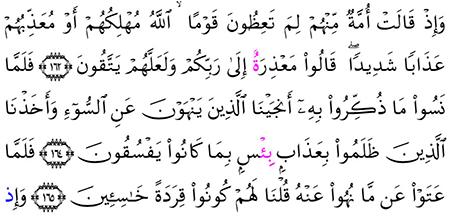 وَإِذْ قَالَتْ أُمَّةٌ مِّنْهُمْ لِمَ تَعِظُونَ قَوْمًا ۙ ٱللَّهُ مُهْلِكُهُمْ أَوْ مُعَذِّبُهُمْ
عَذَابًا شَدِيدًا ۖ قَالُوا۟ مَعْذِرَةٌ إِلَىٰ رَبِّكُمْ وَلَعَلَّهُمْ يَتَّقُونَ ١٦٣ فَلَمَّا
نَسُوا۟ مَا ذُكِّرُوا۟ بِهِۦٓ أَنجَيْنَا ٱلَّذِينَ يَنْهَوْنَ عَنِ ٱلسُّوٓءِ وَأَخَذْنَا
ٱلَّذِينَ ظَلَمُوا۟ بِعَذَابٍۭ بِئْسٍۭ بِمَا كَانُوا۟ يَفْسُقُونَ ١٦٤ فَلَمَّا
عَتَوْا۟ عَن مَّا نُهُوا۟ عَنْهُ قُلْنَا لَهُمْ كُونُوا۟ قِرَدَةً خَـٰسِـِٔينَ ١٦٥ وَإِذ